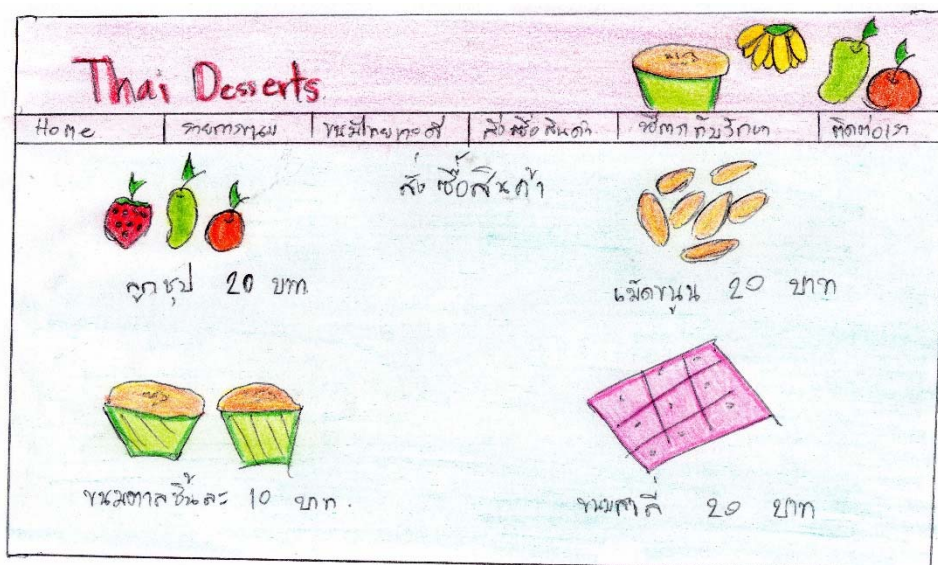 Thai Desserts
Home รายการขนม ขนมไทย สั่งซื้อสินค้า วิธีการเก็บรักษา ติดต่อเรา
สั่งซื้อสินค้า
ลูกชุป 20 บาท
เม็ดขนูน 20 บาท
ขนมตาลชิ้นละ 10 บาท.
ขนมสาลี่ 20 บาท